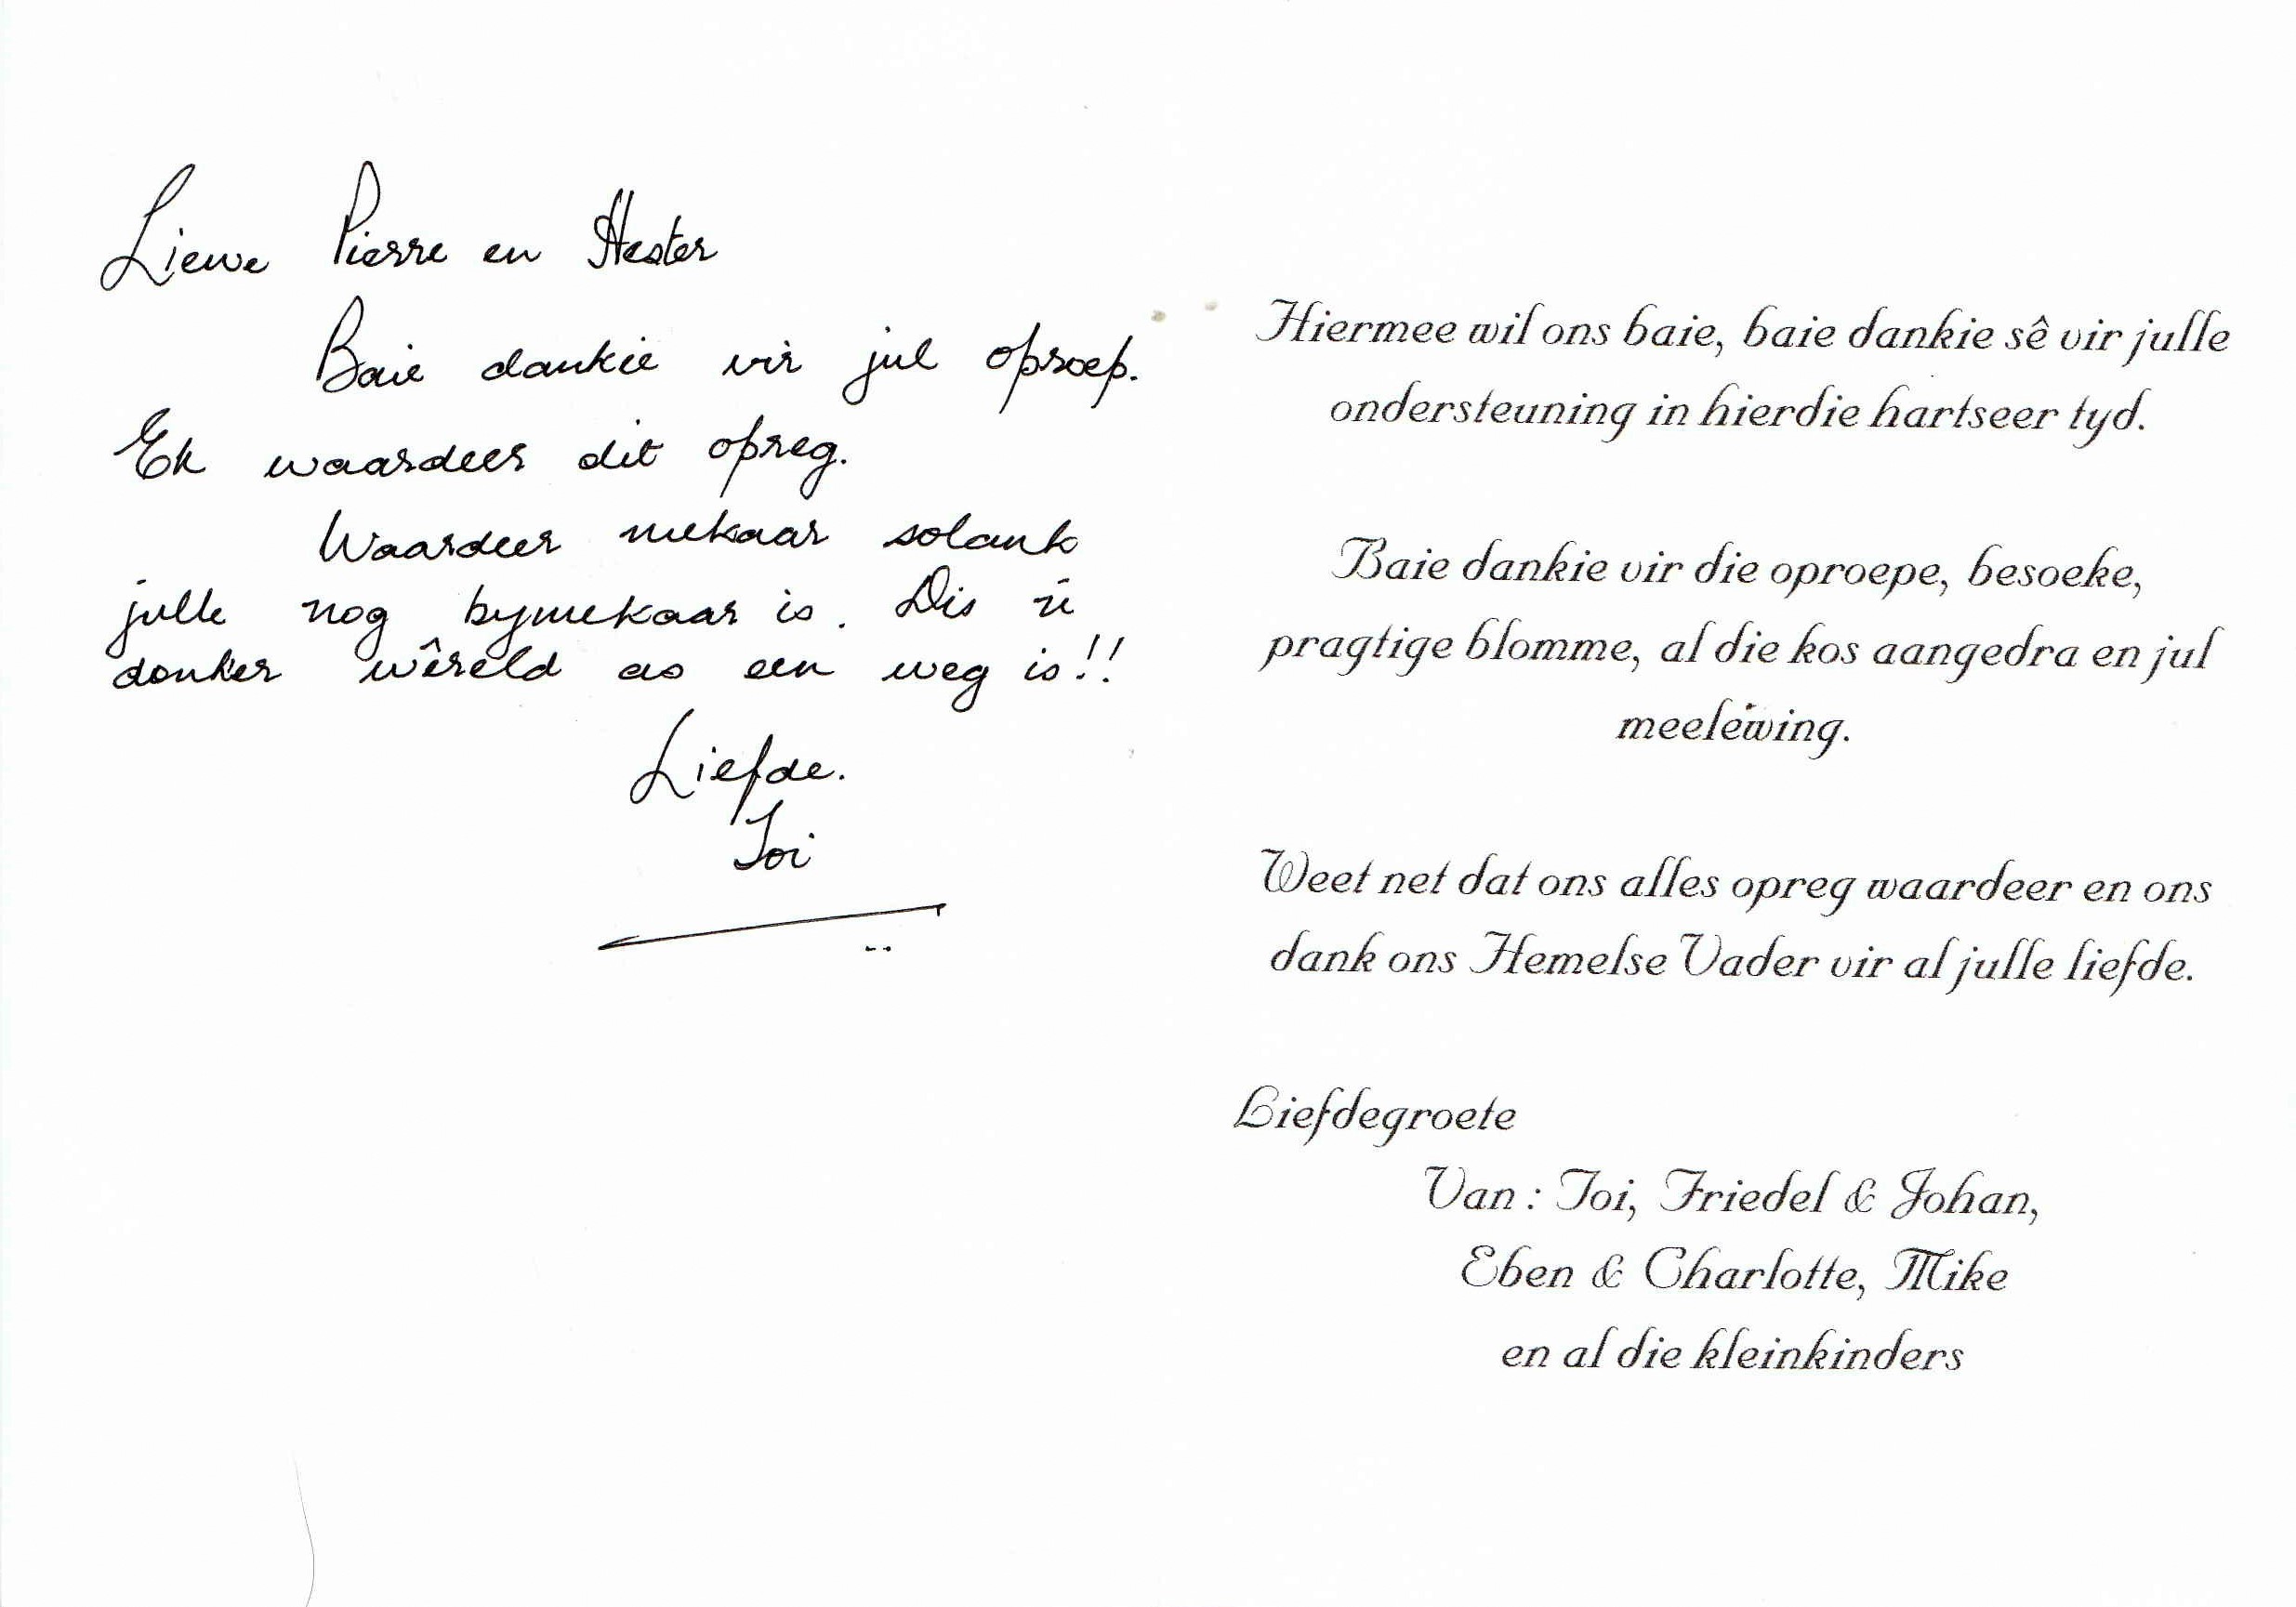 Liewe Pierre en Hester
Baie dankie vir jul oproep.
Ek waardeer dit opreg.
Waardeer mekaar solank
julle nog bymekaar is. Dis 'n
donker wêreld as een weg is!!
Liefde.
Toi
Hiermee wil ons baie, baie dankie sê vir julle
ondersteuning in hierdie hartseer tyd.
Baie dankie vir die oproepe, besoeke,
pragtige blomme, al die kos aangedra en jul
meelewing.
Weet net dat ons alles opreg waardeer en ons
dank ons Hemelse Vader vir al julle liefde.
Liefdegroete
Van : Toi, Friedel & Johan,
Eben & Charlotte, Mike
en al die kleinkinders